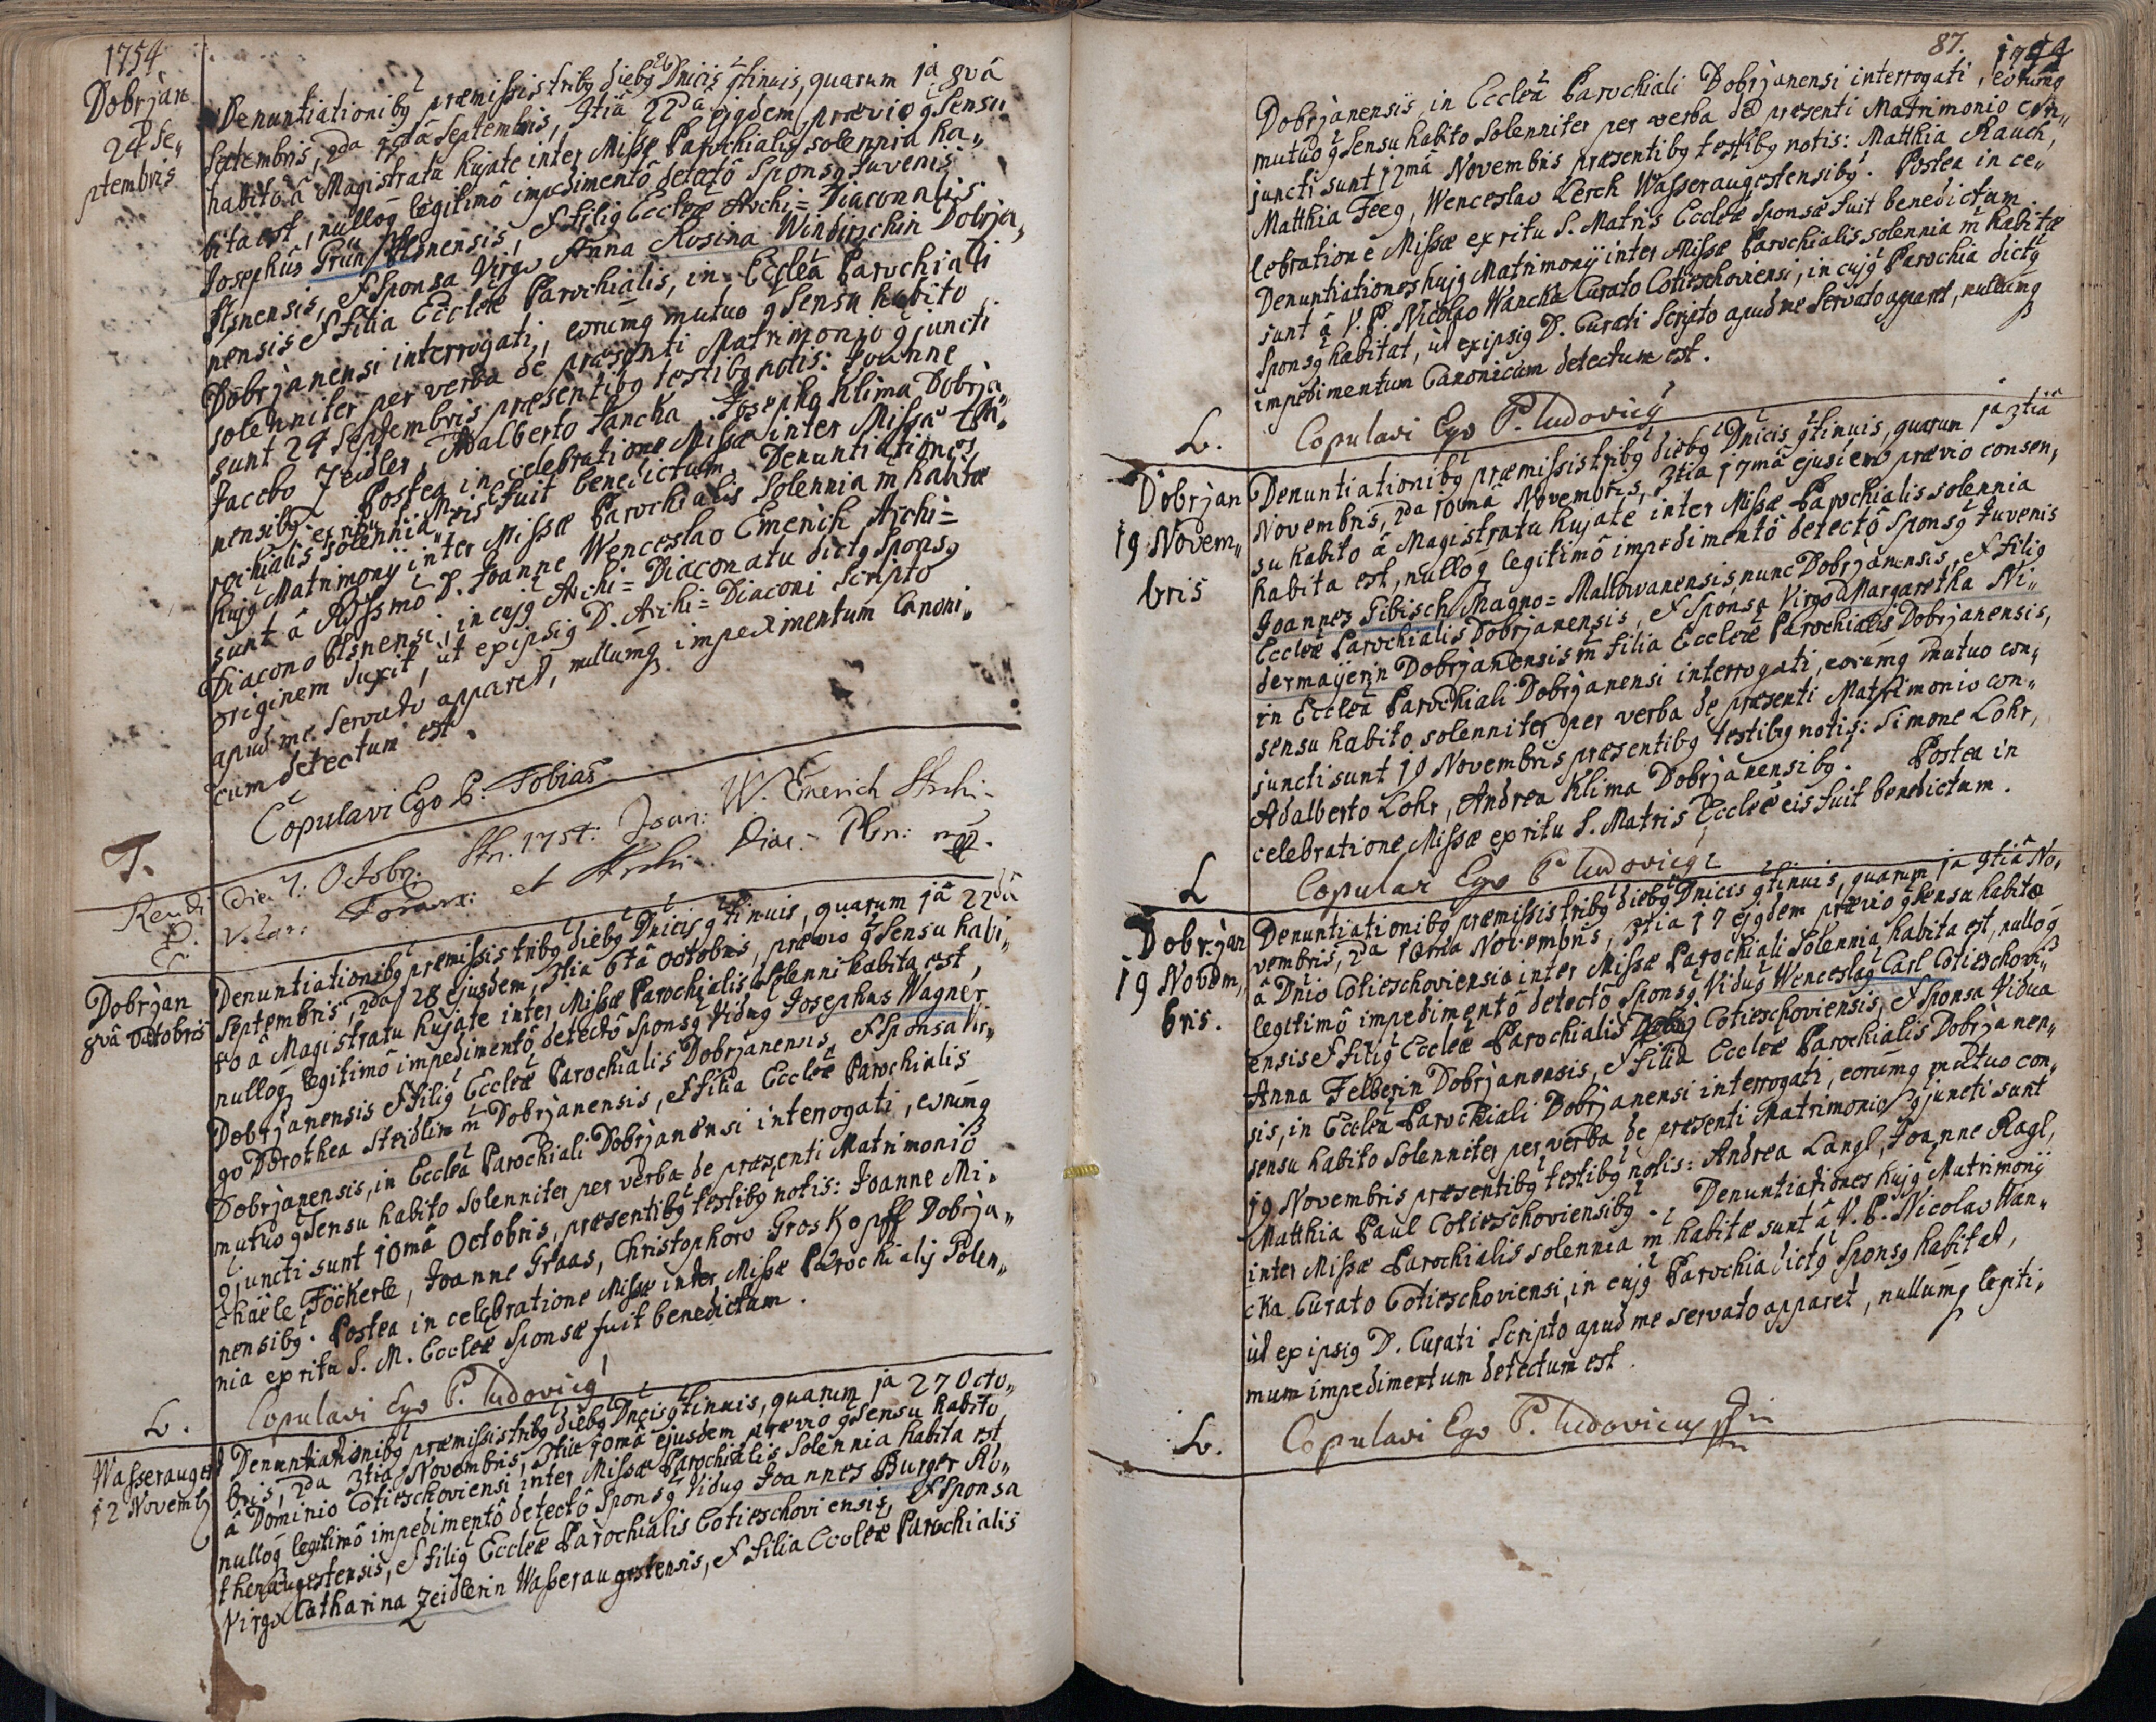 1754
Dobrjan
24 Se„
ptembris
Denuntiationibq præmissis tribq diebq Dnicis qtinuis, quarum ja 8vâ
Septembris, 2da 15tâ Septembris, 3tiâ 22dâ ejqdem prævio qsensu
habitô â Magistratu hujate inter Missæ Parochialis solennia ha„
bita est, nulloq legitimô impedimentô detectô Sponsq Juvenis
Josephus Grün Plsnensis, & filiq Eccleæ Archi=Diaconalis
Plsnensis, & Sponsa Virgo Anna Rosina Windirschin Dobrja„
nensis & filia Eccleæ Parochialis, in Eccleâ Parochiali
Dobrjanensi interrogati, eorumq mutuo qsensu habito
solenniter per verba de præsenti Matrimonio qjuncti
sunt 24 Septembris præsentibq testibq notis: Joanne
Jacobo Zeidler, Adalberto Hancka Josepho Klima Dobrja„
nensibq. Postea in celebratione Missæ inter Missæ Pa„
rochialis solennia ex ritu S. Mris Eccleæ eis fuit benedictum. Denuntiationes
hujq Matrimonij inter Missæ Parochialis Solennia m habitæ
sunt â Rdssmo D. Joanne Wenceslao Emerich Archi=
Diacono Plsnensi, in cujq Archi=Diaconatu dictq Sponsq
originem duxit, ut ex ipsiq D. Archi=Diaconi Scripto
apud me servato apparet, nullumq impedimentum Canoni„
cum detectum est.
T. Copulavi Ego P. Tobias
Die 7. Octobr: 1754: Joan: W. Emerich Archi-
V. For: et Archi Diac: Plsn: mp.
Dobrjan
8vâ Octobris
Denuntiationibq præmissis tribq diebq Dnicis qtinuis, quarum jâ 22dâ
Septembris, 2da 28 ejusdem, 3tia 6tâ octobris, prævio qsensu habi„
to â Magistratu hujate inter Missæ Parochialis solenni habita est,
nulloq legitimô impedimentô detectô Sponsq Viduq Josephus Wagner
Dobrjanensis & filiq Eccleæ Parochialis Dobrjanensis, & Sponsa Vir„
go Dorothea Steidlin m Dobrjanensis, & filia Eccleæ Parochialis
Dobrjanensis, in Eccleâ Parochiali Dobrjanensi interrogati, eorumq
mutuo qsensu habito solenniter per verba de præsenti Matrimonio
qjuncti sunt 10mâ Octobris, præsentibq testibq notis: Joanne Mi„
chaele Föckerle, Joanne Graas, Christophoro Groskopff Dobrja„
nensibq. Postea in celebratione Missæ inter Missæ Parochialis Solen„
nia ex ritu S. M. Eccleæ Sponsæ fuit benedictum.
L. Copulavi Ego P. Ludovicq
Wasseraugest
12 Novemb
Denuntiationibq præmissis tribq diebq Dnicis qtinuis, quarum ja 27 Octo„
bris, 2da 3tia Novembris, 3tia 10mâ ejusdem prævio qsensu habito
â Dominio Cotieschoviensi inter Missæ Parochialis Solennia habita est
nulloq legitimô impedimentô detectô Sponsq Viduq Joannes Burger Ro„
thenaugestensis, & filiq Eccleæ Parochialis Cotieschoviensis, & Sponsa
Virgo Catharina Zeidlerin Wasseraugestensis, & filia Eccleæ Parochialis
87. 1754
Dobrjanensis in Eccleâ Parochiali Dobrjanensi interrogati, eorumq
mutuo qsensu habito Solenniter per verba de præsenti Matrimonio con„
juncti sunt 12mâ Novembris præsentibq testibq notis: Matthia Rauch,
Matthia Feeg, Wenceslao Lerch Wasseraugestensibq. Postea in ce„
lebratione Missæ ex ritu S. Matris Eccleæ Sponsæ fuit benedictum.
Denuntiationes hujq Matrimonij inter Missæ Parochialis solennia m habitæ
sunt â V. P. Nicolao Wancka Curato Cotieschoviensi, in cujq Parochia dictq
Sponsq habitat, ut ex ipsiq D. Curati Scripto apud me servato apparet, nullumq
impedimentum Canonicum detectum est.
L. Copulavi Ego P. Ludovicq
Dobrjan
19 Novem„
bris
Denuntiationibq præmissis tribq diebq Dnicis qtinuis, quarum ja 3tiâ
Novembris, 2da 10mâ Novembris, 3tia 17mâ ejusdem prævio consen„
su habito â Magistratu hujate inter Missæ Parochialis solennia
habita est, nulloq legitimô impedimentô detectô Sponsq Juvenis
Joannes Gibisch Magno=Mallowanensis, nunc Dobrjanensis, & filiq
Eccleæ Parochialis Dobrjanensis, & Sponsa Virgo Margaretha Ni„
dermaijerin Dobrjanensis m filia Eccleæ Parochialis Dobrjanensis,
in Eccleâ Parochiali Dobrjanensi interrogati, eorumq mutuo con„
sensu habito solenniter per verba de præsenti Matrimonio con„
juncti sunt 19 Novembris præsentibq testibq notis: Simone Lohr,
Adalberto Lohr, Andrea Klima Dobrjanensibq. Postea in
celebratione Missæ ex ritu S. Matris Eccleæ eis fuit benedictum.
L Copulavi Ego P Ludovicq
Dobrjan
19 Novem„
bris.
Denuntiationibq præmissis tribq diebq Dnicis qtinuis, quarum ja 3tiâ No„
vembris, 2da 10ma Novembris, 3tia 17 ejqdem prævio qsensu habitæ
â Dnio Cotieschoviensi inter Missæ Parochiali Solennia habita est, nulloq
legitimô impedimentô detectô Sponsq Viduq Wenceslaq Carl Cotieschovi„
ensis & filiq Eccleæ Parochialis Cotieschoviensis, & Sponsa Vidua
Anna Felberin Dobrjanensis, & filia Eccleæ Parochialis Dobrjanen„
sis, in Eccleâ Parochiali Dobrjanensi interrogati, eorumq mutuo con„
sensu habito Solenniter per verba de præsenti Matrimonio qjuncti sunt
19 Novembris præsentibq testibq notis: Andrea Langl, Joanne Ragl,
Matthia Paul Cotieschoviensibq. Denuntiationes hujq Matrimonij
inter Missæ Parochialis solennia m habitæ sunt â V. P. Nicolao Wan„
cka Curato Cotieschoviensi, in cujq Parochia dictq Sponsq habitat,
ut ex ipsiq D. Curati Scripto apud me servato apparet, nullumq legiti„
mum impedimentum detectum est.
L. Copulavi Ego P. Ludovicus